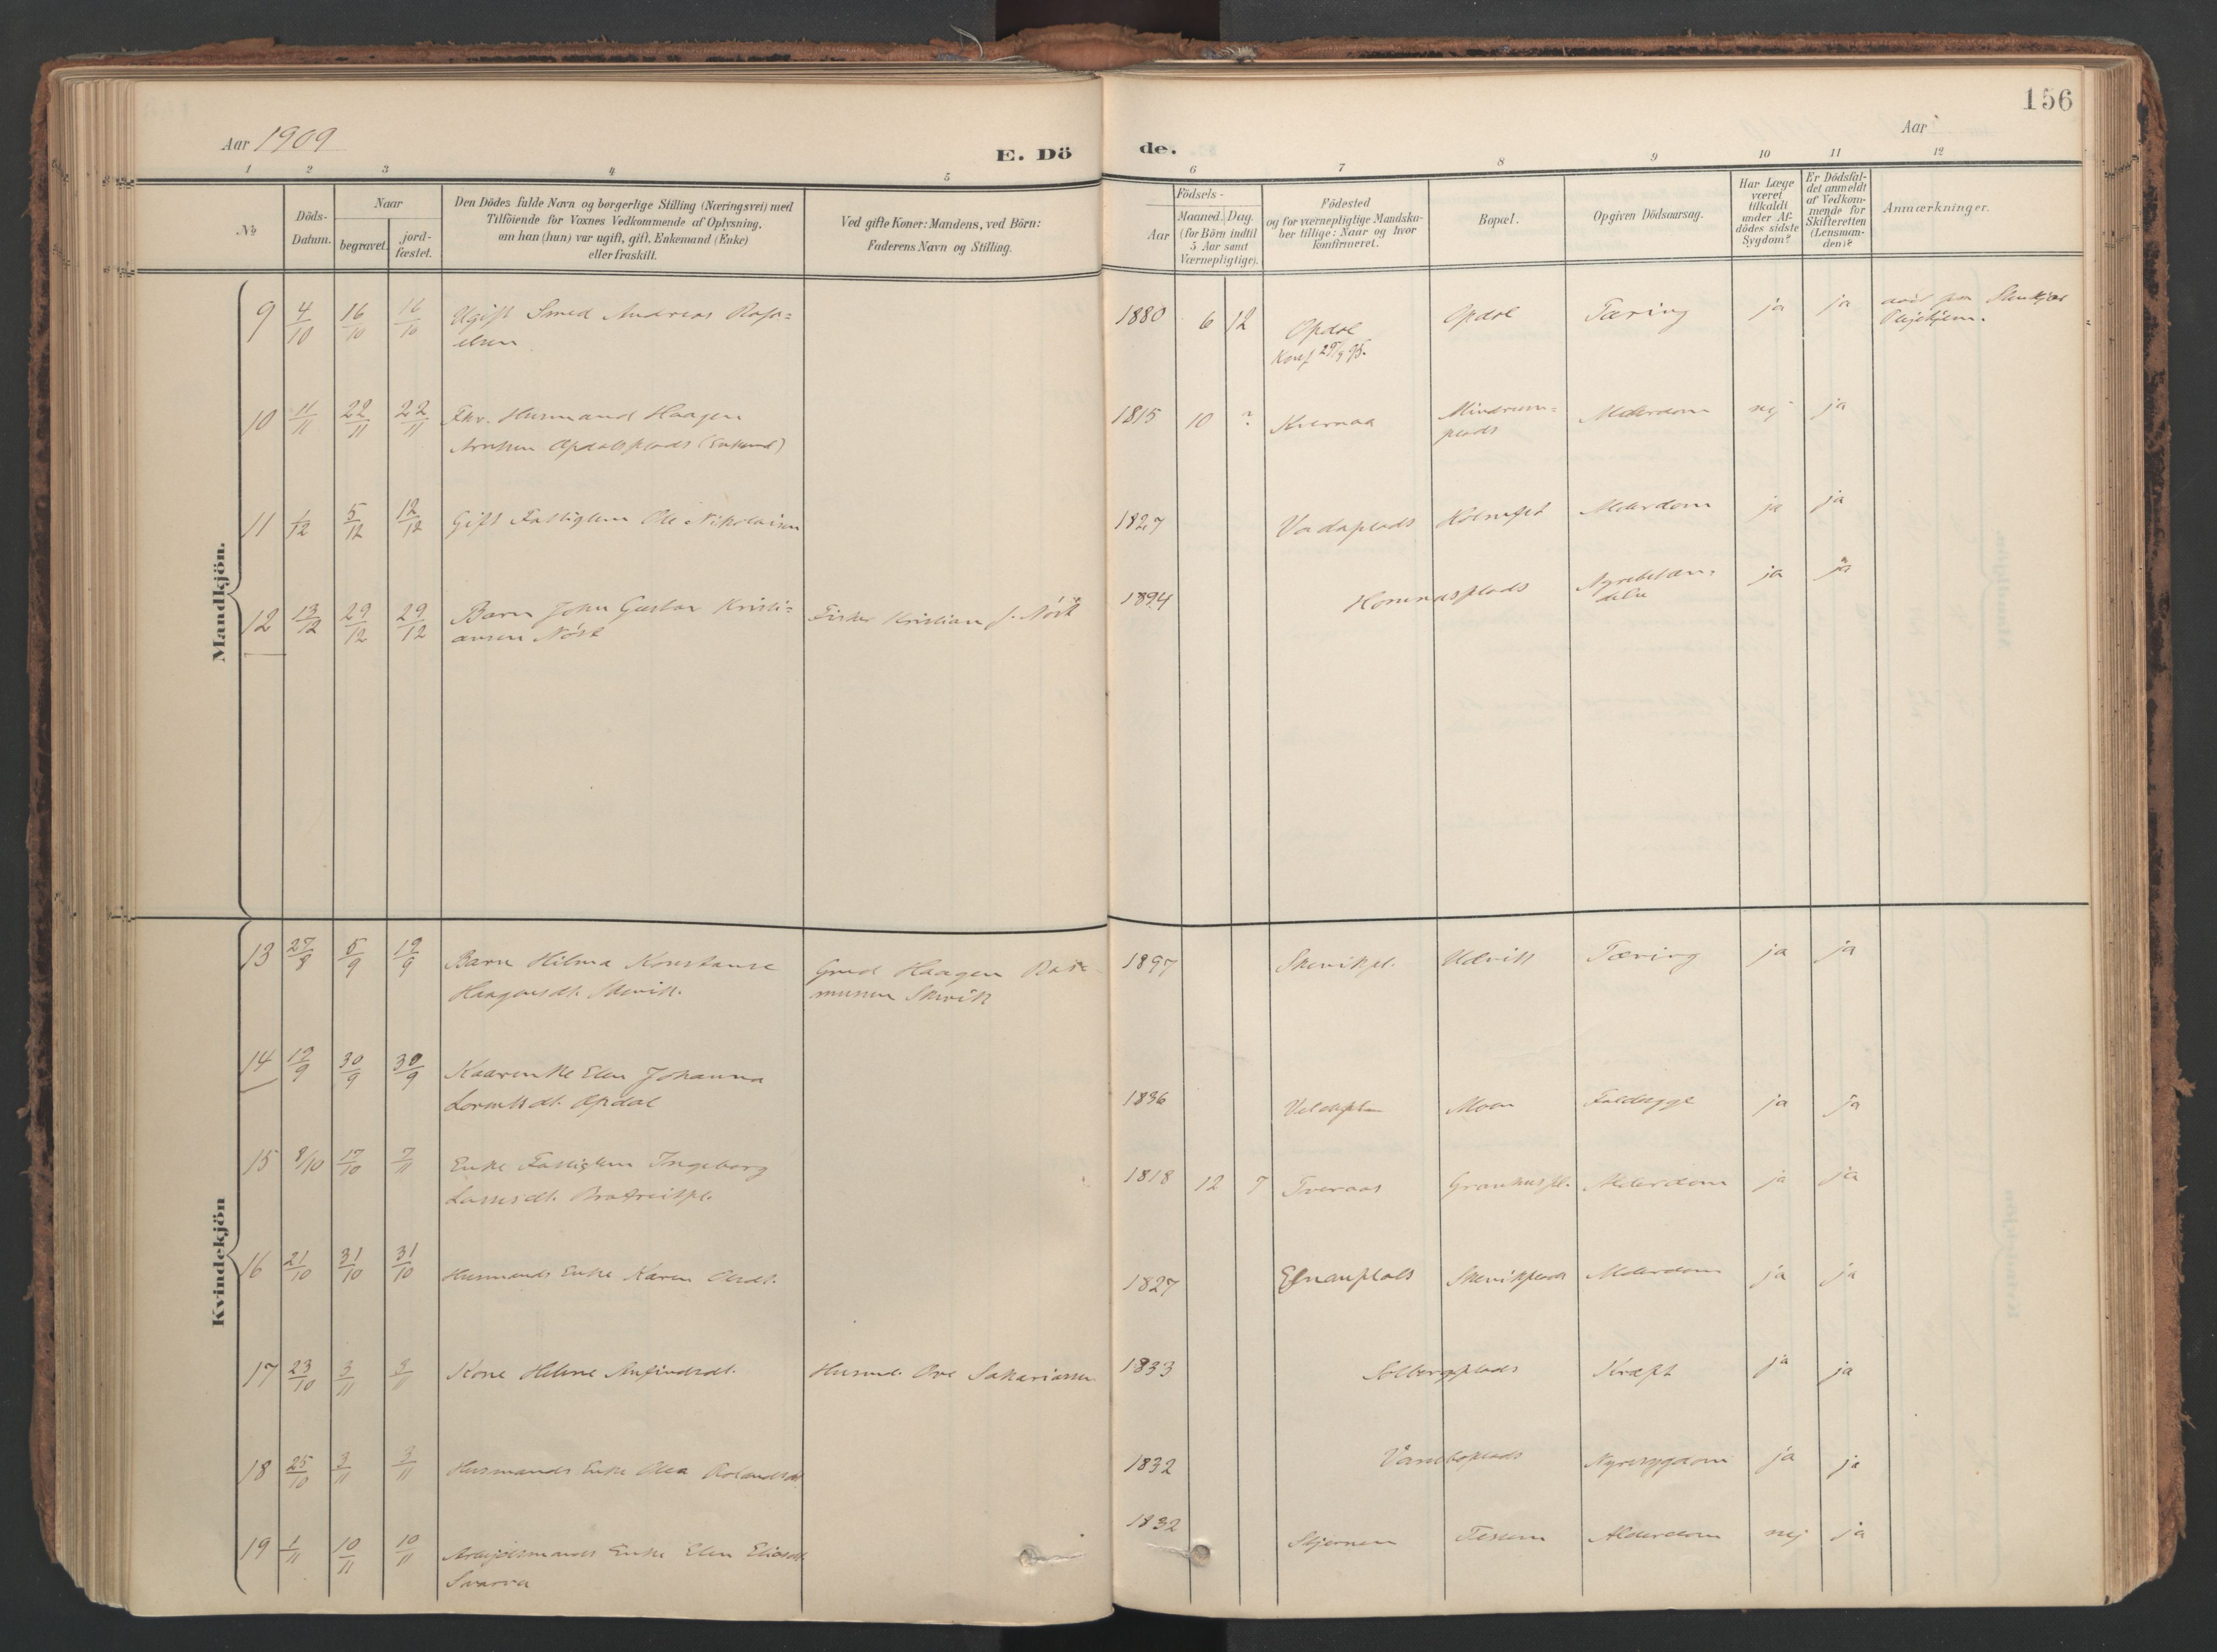 156
Aar 1909
E. Dö
de.
Aar
1 2 3 4 5 6 7 8 9 10 11 12
№
Döds-
Datum.
Naar
begravet.
jord-
fæstet.
Den Dödes fulde Navn og borgerlige Stilling (Næringsvei) med
Tilföiende for Voxnes Vedkommende af Oplysning,
om han (hun) var ugift, gift, Enkemand (Enke)
eller fraskilt.
Ved gifte Koner: Mandens, ved Börn:
Faderens Navn og Stilling.
Födsels-
Aar
Maaned. Dag.
(for Börn indtil
5 Aar samt
Værnepligtige).
Födested
og for værnepligtige Mandska-
ber tillige: Naar og hvor
konfirmeret.
Bopæl.
Opgiven Dödsaarsag.
Har Læge
været
tilkaldt
under Af-
dödes sidste
Sygdom?
Er Dödsfal-
det anmeldt
af Vedkom-
mende for
Skifteretten
(Lensman-
den)?
Anmærkninger.
Mandkjön.
9 4/10 16/10 16/10 Ugift Smed Andreas Rafa=
elsen
1880 6 12 Opdal
Konf 29/9 95.
Opdal Tæring ja ja
Plejehjem.
10 11/11 22/11 22/11 Fhv. Husmand Haagen
Arntsen Opdalsplads (Enkemd)
1815 10 ? Kvernaa
plads
Alderdom nej ja
11 1/12 5/12 12/12 Gift Fattiglem Ole Nikolaisen
1827 Vadaplads Alderdom ja ja
12 13/12 29/12 29/12 Barn John Gustav Kristi=
ansen Nöst
Fisker Kristian J. Nöst
1894 ja ja
Kvindekjön
13 27/8 5/9 19/9 Barn Hilma Konstanse
Haagensdt. Skevik.
Gmd Haagen Ras=
mussen Skevik
1897 Skevikpl. Udvik Tæring ja ja
14 12/9 30/9 30/9 Kaarenke Elen Johanna
Lorentsdt. Opdal
1836 Moen ja ja
15 8/10 17/10 7/11 Enke Fattiglem Ingeborg
Larsdt.
1818 12 7 Tveraas Granhuspl. Alderdom ja ja
16 21/10 31/10 31/10 Husmands Enke Karen Olsdt.
1827 Skevikplads Alderdom ja ja
17 23/10 3/11 3/11 Kone Helene Anfindsdt.
Husmd. Ove Sakariassen
1833 Solbergplads Kræft ja ja
18 25/10 3/11 3/11 Husmands Enke Olea Rolandsdt.
1832 Nyresygdom ja ja
19 1/11 10/11 10/11 Arbejdsmands Enke Elen Eliasdt.
Svarva
1832 Stjernen Tessem Alderdom nej ja